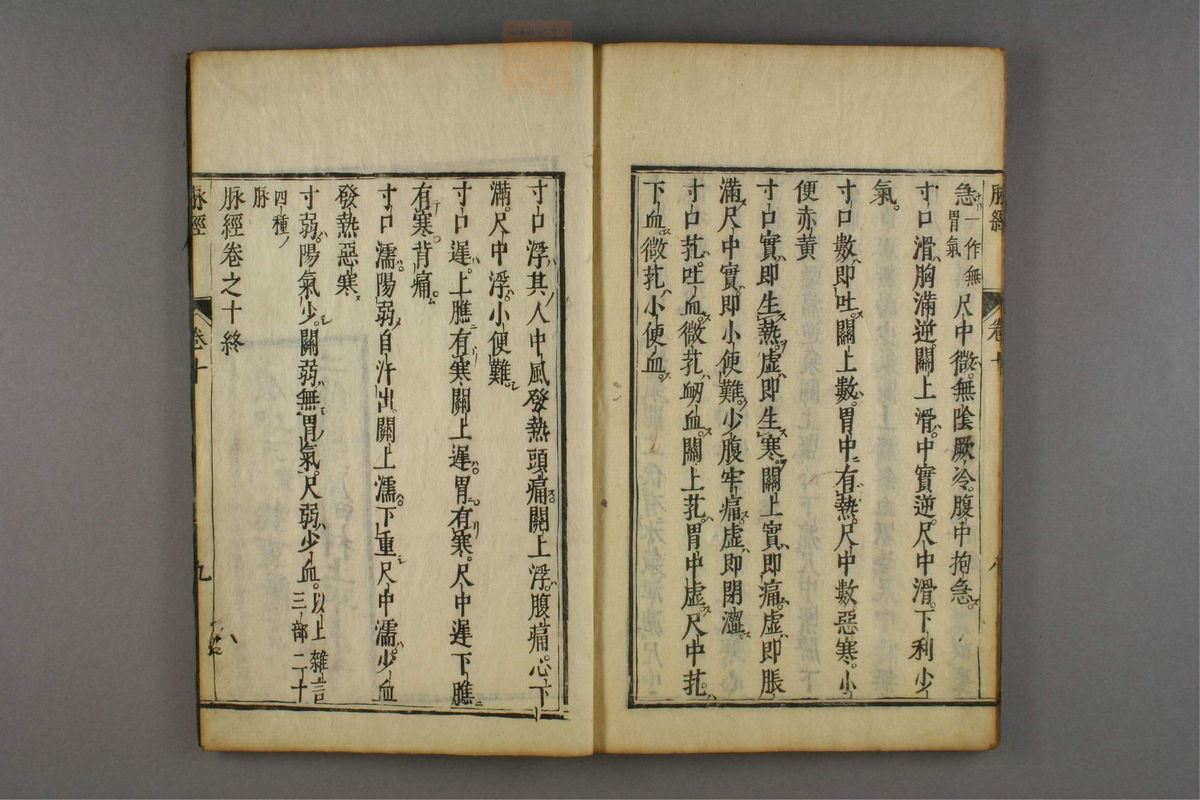 脉經　卷十　八
急一作無胃氣尺中微無陰厥冷腹中拘急
寸口滑胸滿逆關上滑中實逆尺中滑下利少
氣
寸口數即吐關上數胃中有熱尺中數惡寒小
便赤黃
寸口實即生熱虛即生寒關上實即痛虛即脹
滿尺中實即小便難少腹牢痛虛即閉澀
寸口芤吐血微芤衂血關上芤胃中虛尺中芤
下血微芤小便血
寸口浮其人中風發熱頭痛關上浮腹痛心下
滿尺中浮小便難
寸口遲上膲有寒關上遲胃有寒尺中遲下膲
有寒背痛
寸口濡陽弱自汗出關上濡下重尺中濡少血
發熱惡寒
寸弱陽氣少關弱無胃氣尺弱少血以上雜言三部二十
四種脉
脉經卷之十終
脉經　卷十　九